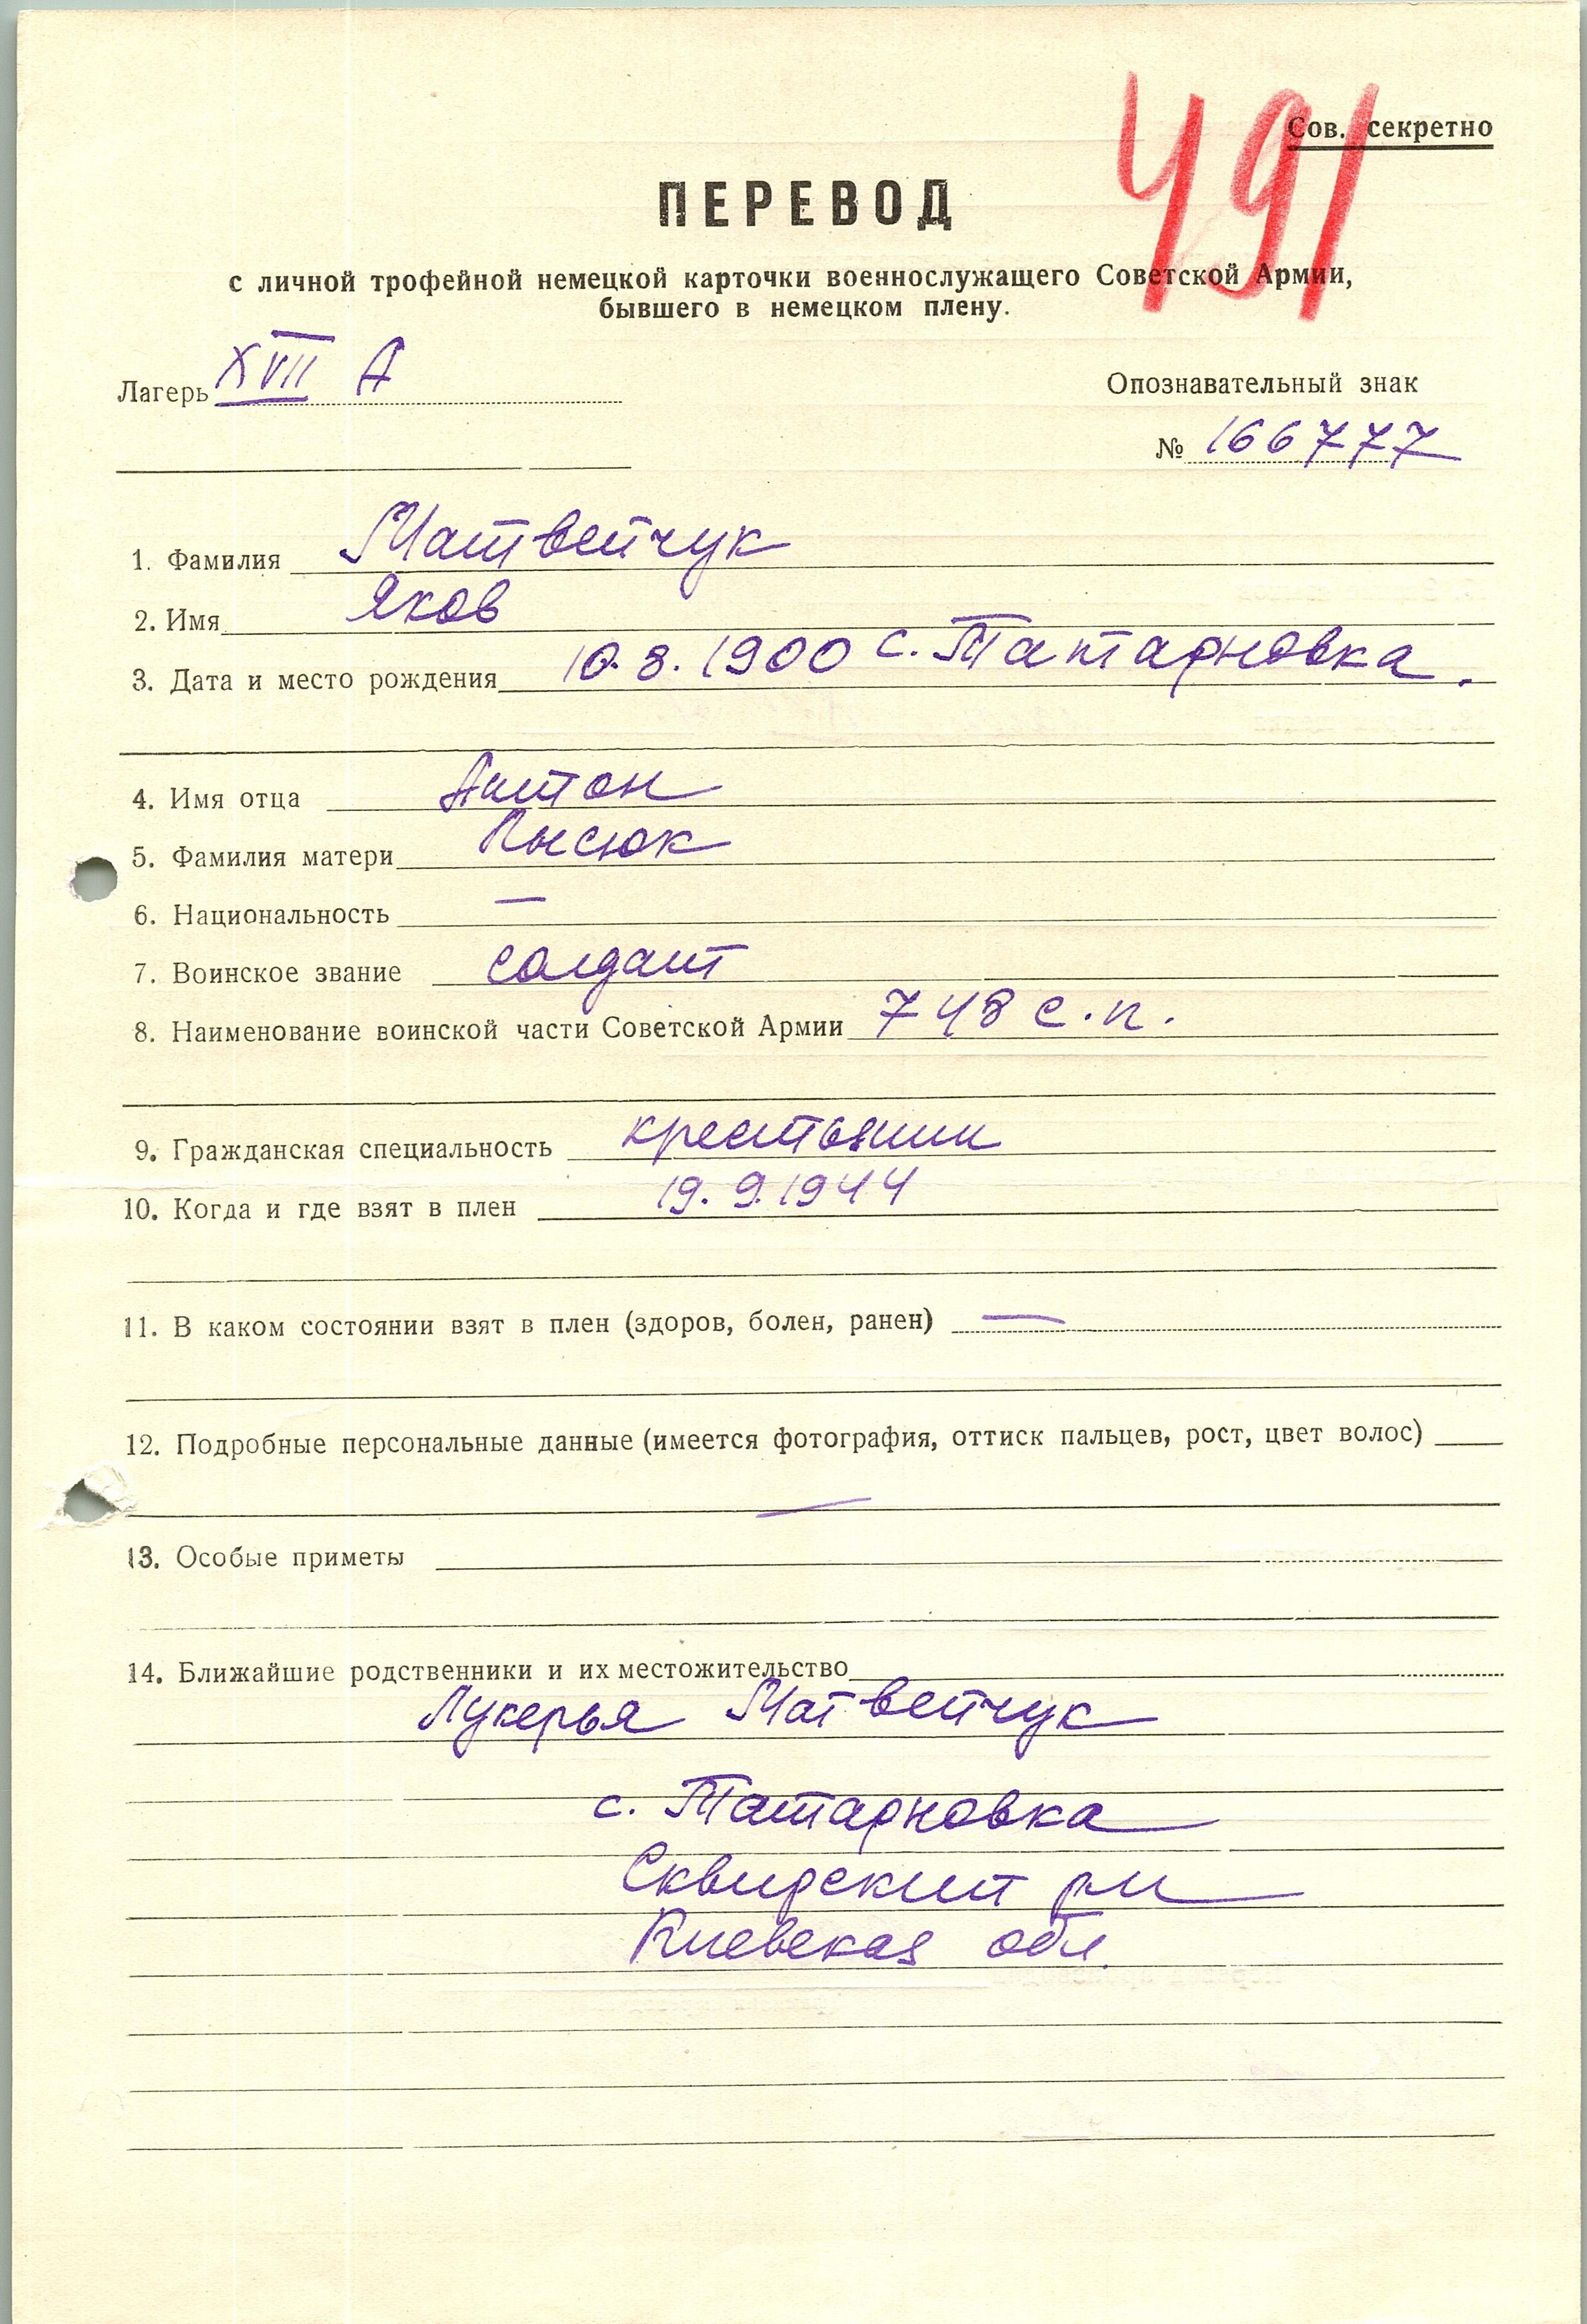 491
Сов. секретно
ПЕРЕВОД
с личной трофейной немецкой карточки военнослужащего Советской Армии,
бывшего в немецком плену.
Лагерь XVII А
Опознавательный знак
№ 166777
1. Фамилия Матвейчук
2. Имя Яков
3. Дата и место рождения 10.8.1900 с. Татарновка.
4. Имя отца Антон
5. Фамилия матери Лысюк
6. Национальность —
7. Воинское звание солдат
8. Наименование воинской части Советской Армии 748 с.п.
9. Гражданская специальность крестьянин
10. Когда и где взят в плен 19.9.1944
11. В каком состоянии взят в плен (здоров, болен, ранен) —
12. Подробные персональные данные (имеется фотография, оттиск пальцев, рост, цвет волос)
—
13. Особые приметы
14. Ближайшие родственники и их местожительство
Лукерья Матвейчук
с. Татарновка
Сквирский рн
Киевская обл.